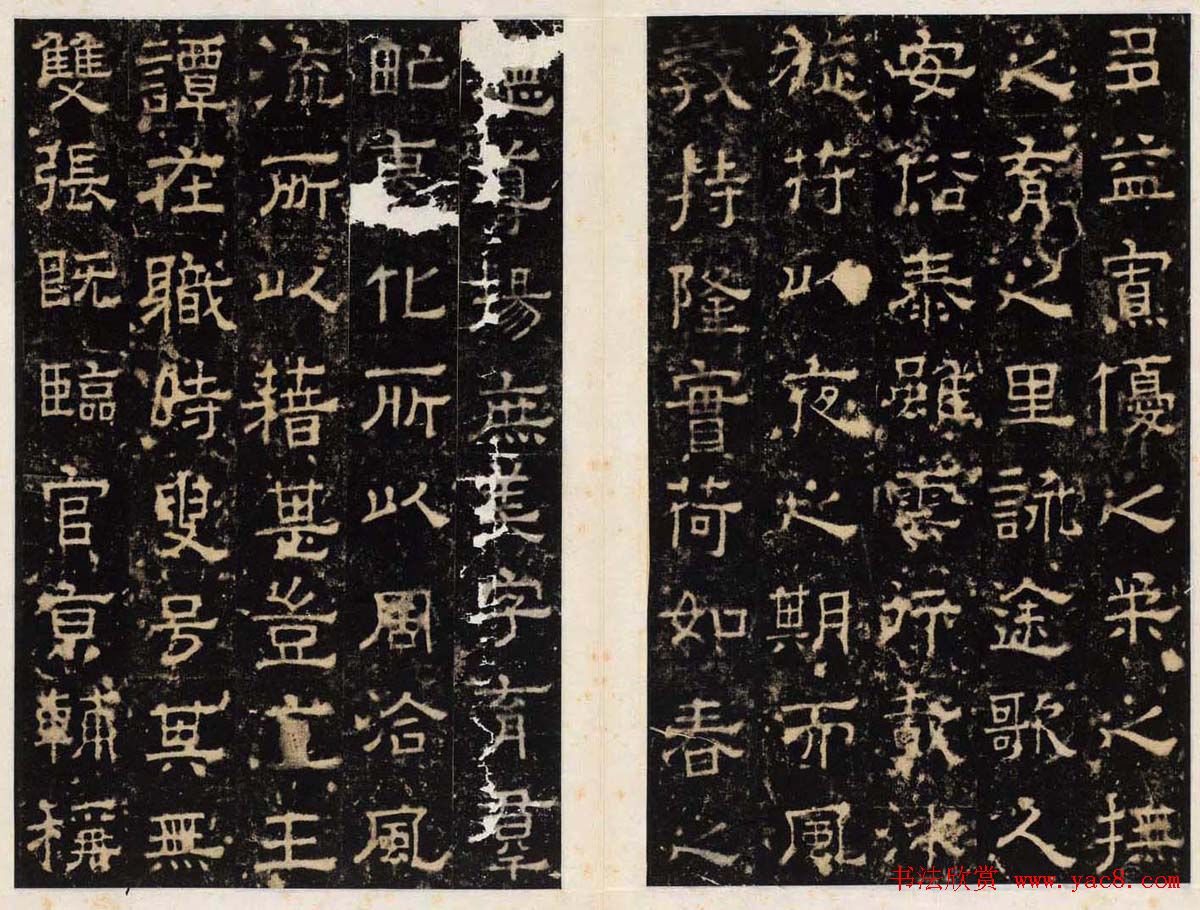 多益寡優之柔之撫
之育之里詠途歌久
安俗泰雖雲行
旋符以夜之期而風
教持隆實荷如春之
揚庶字育羣
甿化所以周洽風
流所以藉甚豈直王
譚在職時叟号其無
雙張既臨官京輔稱
书法欣赏 www.yac8.com